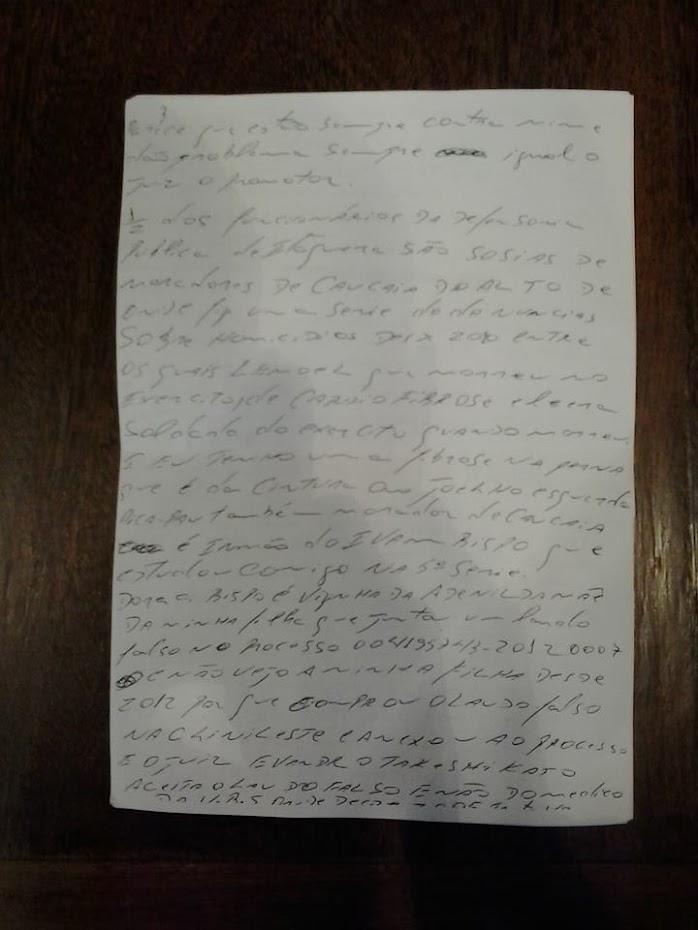 3
que estão sempre contra mim e
dão problema sempre igual o
juiz o promotor.
1/2 dos funcionários da defensoria
Publica de são sosias de
moradores de CAUCAIA DO ALTO DE
onde fiz uma serie de denuncias
Sobre Homicidios entre
os quais que morreu no
Exercito de CARDIO FIBROSE e era
Soldado do exercito quando morreu
E EU TENHO uma fibrose NA perna
que é da CINTURA ao JOELHO esquerdo
PICA-PAU também morador de CAUCAIA
é IRMÃO do IVAN BISPO que
estudou comigo NA 5ª Serie.
BISPO É VIZINHA DA ADENILDA MÃE
DA MINHA filha que juntou um laudo
falso NO PROCESSO
E NÃO VEJO A MINHA FILHA DESDE
2012 por que COMPROU O LAUDO falso
NA CLINILESTE e ANEXOU AO PROCESSO
E O JUIZ EVANDRO TAKESHI KATO
ACEITA O LAUDO FALSO E NÃO DO medico